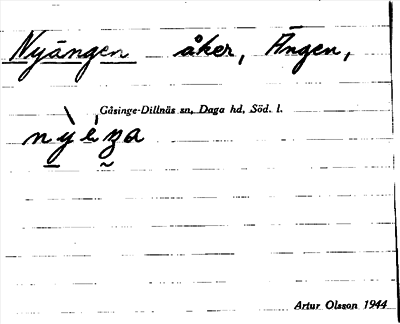 Nyängen åker, Ängen,
Gåsinge-Dillnäs sn, Daga hd, Söd. l.
Artur Olsson 1944